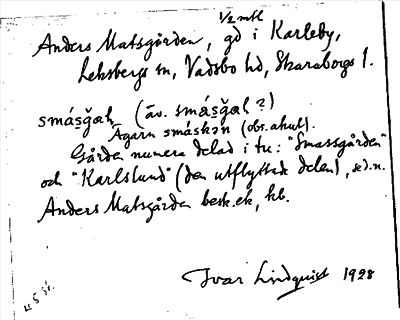 1/2 mtl
Anders Matsgården, gd i Karleby,
Leksbergs sn, Vadsbo hd, Skaraborgs l.
smás̬g̬ah (äv. smás̬g̬al ?)
Ägarn smáskən (obs. akut).
Gården numera delad i tu: "Smassgården"
och "Karlslund" (den utflyttade delen), se d.n.
Anders Matsgården besk. ek, kb.
Ivar Lindquist 1928